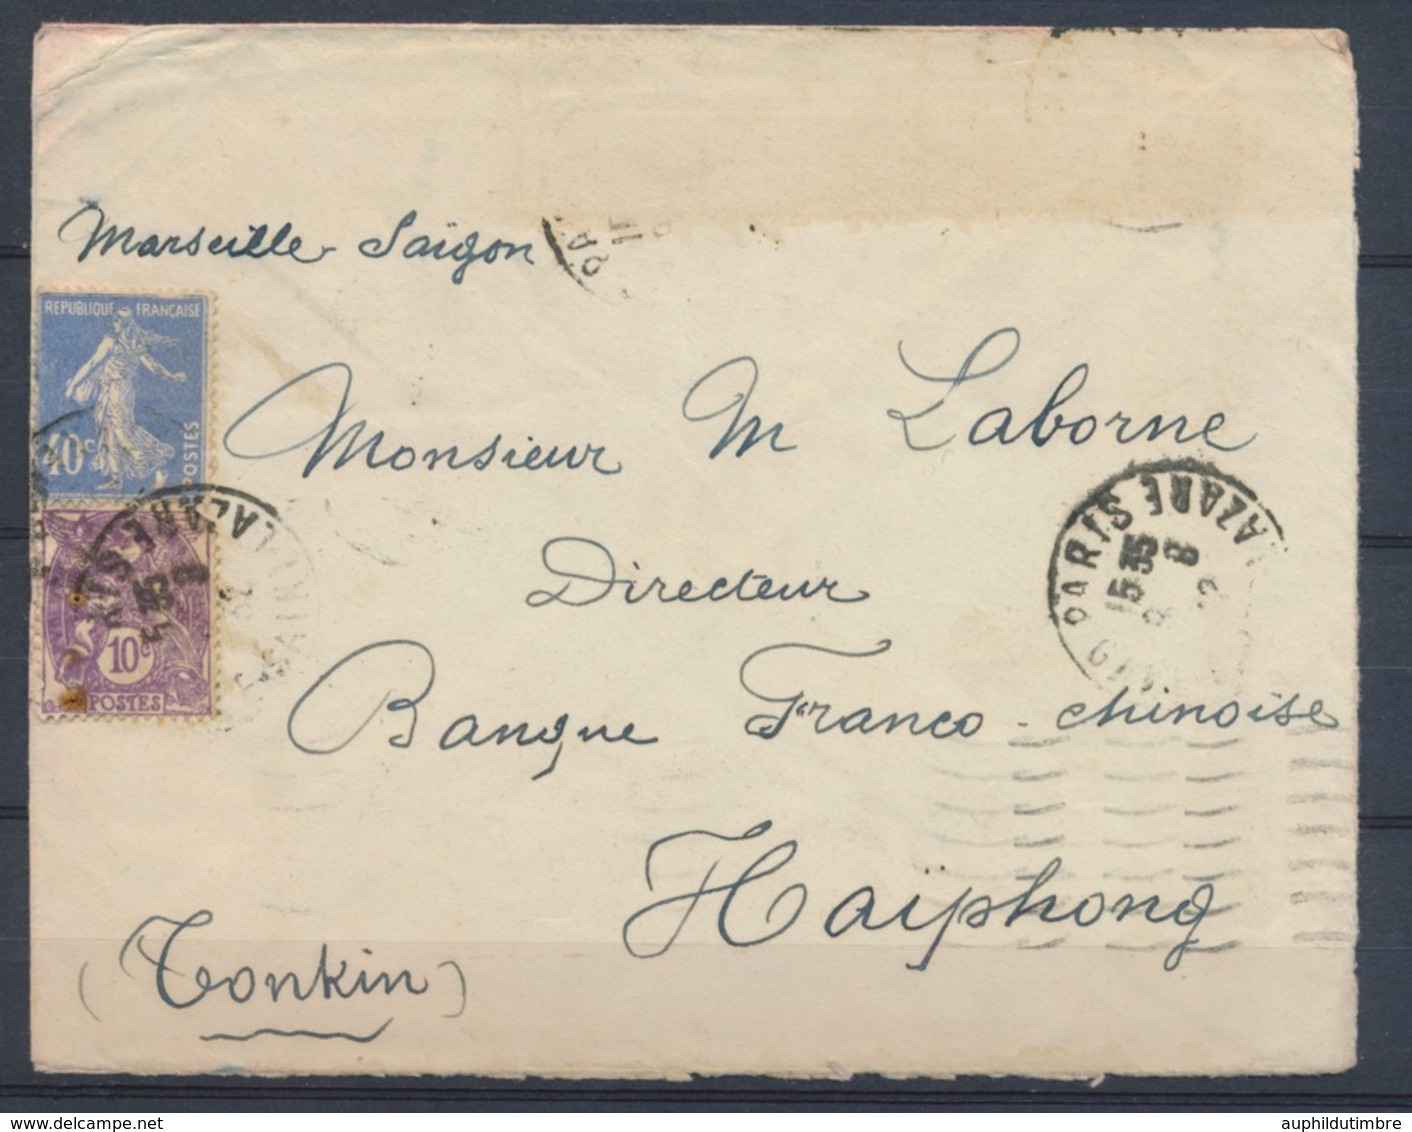 Marseille - Saïgon
REPUBLIQUE FRANÇAISE
40c
POSTES
10c
POSTES
Monsieur M Laborne
Directeur
Banque Franco-chinoise
Haïphong
(Tonkin)
PARIS
LAZARE
15 35
8
PARIS
LAZARE
SAINT
32
auphildutimbre.com